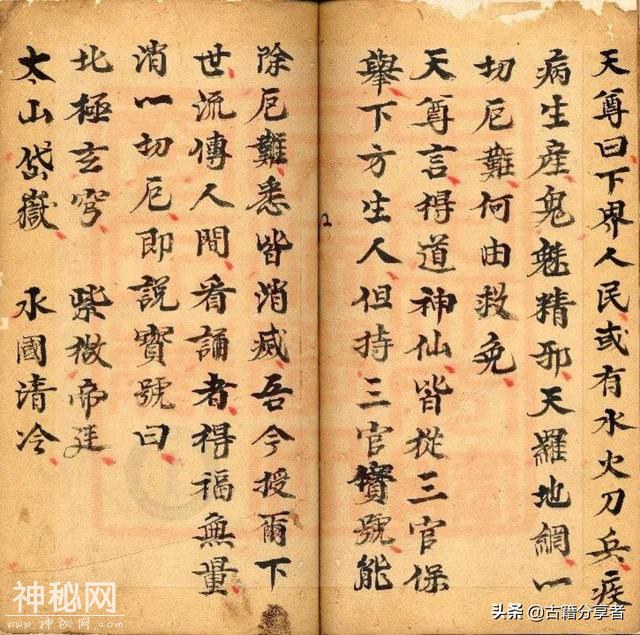 天尊曰下界人民或有水火刀兵疾
病生産鬼魅精邪天羅地網一
切厄難何由救免
天尊言得道神仙皆從三官保
舉下方生人但持三官寳號能
除厄難悉皆消滅吾今授爾下
世流傳人間看誦者得福無量
消一切厄即説寳號曰
北極玄穹 紫微帝廷
太山岱嶽 水國清冷
神秘网
WWW.神秘网.COM
头条 @古籍分享者